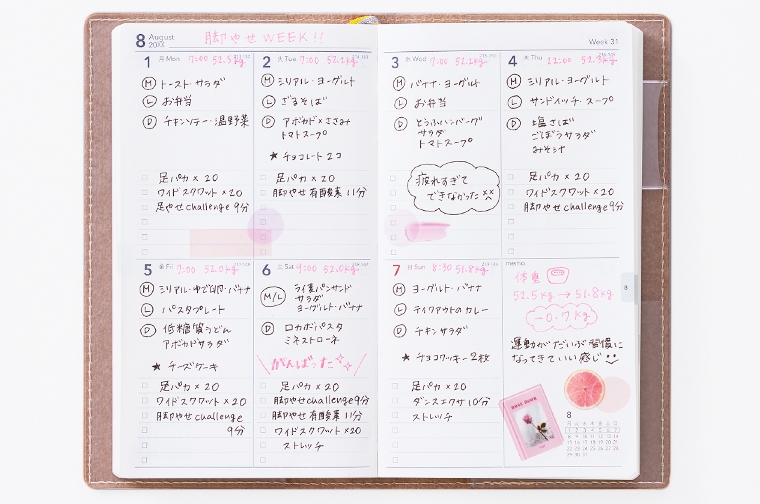 8 August
脚やせWEEK!!
Week 31
1 月 Mon 7:00 52.5kg
Ⓜ トースト・サラダ
Ⓛ お弁当
Ⓓ チキンソテー・温野菜
足パカ×20
ワイドスクワット×20
足やせchallenge 9分
2 火 Tue 7:00 52.2kg
Ⓜ シリアル・ヨーグルト
Ⓛ ざるそば
Ⓓ アボカド×ささみ
トマトスープ
★ チョコレート2コ
足パカ×20
脚やせ有酸素11分
3 水 Wed 7:00 52.2kg
Ⓜ バナナ・ヨーグルト
Ⓛ お弁当
Ⓓ とうふハンバーグ
サラダ
トマトスープ
疲れすぎて
できなかった
4 木 Thu
Ⓜ シリアル・ヨーグルト
Ⓛ サンドイッチ・スープ
Ⓓ 塩さば
ごぼうサラダ
みそ汁
足パカ×20
ワイドスクワット×20
脚やせchallenge 9分
5 金 Fri 7:00 52.0kg
Ⓜ シリアル・ゆで卵・バナナ
Ⓛ パスタプレート
Ⓓ 低糖質うどん
アボカドサラダ
★ チーズケーキ
足パカ×20
ワイドスクワット×20
脚やせchallenge
9分
6 土 Sat 9:00 52.0kg
M/L ライ麦パンサンド
サラダ
ヨーグルト・バナナ
Ⓓ ロカボパスタ
ミネストローネ
がんばった
足パカ×20
脚やせchallenge 9分
脚やせ有酸素11分
ワイドスクワット×20
ストレッチ
7 日 Sun 8:30 51.8kg
Ⓜ ヨーグルト・バナナ
Ⓛ テイクアウトのカレー
Ⓓ チキンサラダ
★ チョコクッキー2枚
足パカ×20
ダンスエクササ10分
ストレッチ
memo
体重
52.5kg→51.8kg
-0.7kg
運動がだいぶ習慣に
なってきていい感じ
8
8
月 火 水 木 金 土 日
1 2 3 4 5 6 7
8 9 10 11 12 13 14
15 16 17 18 19 20 21
22 23 24 25 26 27 28
29 30 31